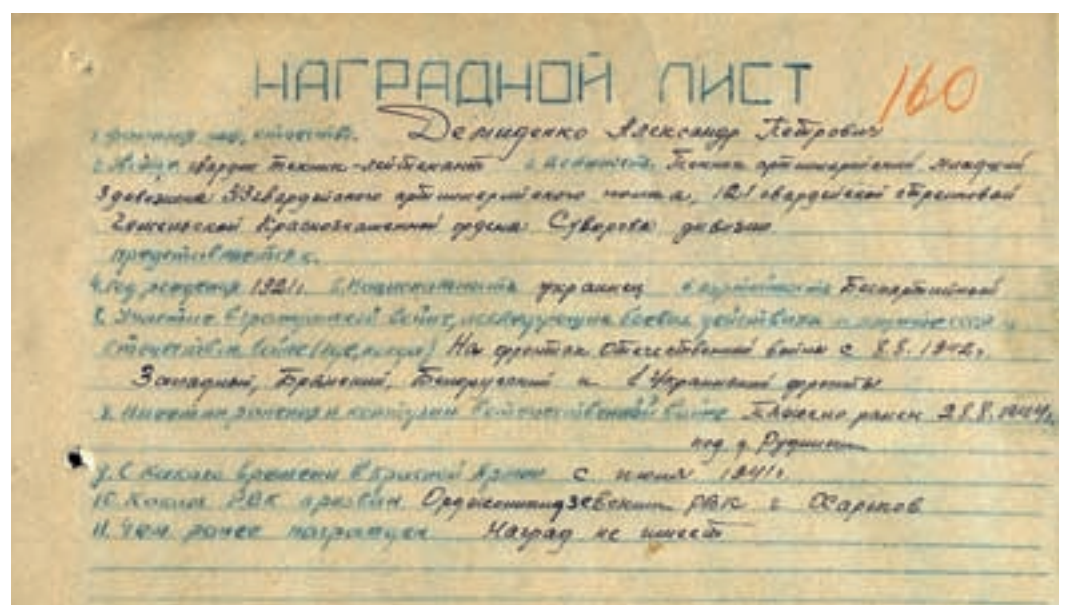 НАГРАДНОЙ ЛИСТ 160
1. Фамилия, имя, отчество. Демиденко Александр Петрович
2. Звание гвардии техник-лейтенант 3. Должность. Техник артиллерийский младший
3 дивизиона артиллерийского полка, 121 гвардейской стрелковой
Гомельской Краснознаменной ордена Суворова дивизии
представляется к.
4. Год рождения 1921 г. 5. Национальность украинец 6. партийность Беспартийный
Участие в гражданской войне, последующих боевых действиях и
отечественной войне (где, когда) На фронтах Отечественной войны с 8.8.1942 г
Западный, Брянский, Белорусский и 1 Украинский фронты
8. Имеет ли ранения и контузии в отечественной войне ранен 28.8.1944 г.
под д.
9. С какого времени в Красной Армии с июля 1941 г
10. Каким РВК призван Орджоникидзевским РВК г Харьков
11. Чем ранее награжден Наград не имеет